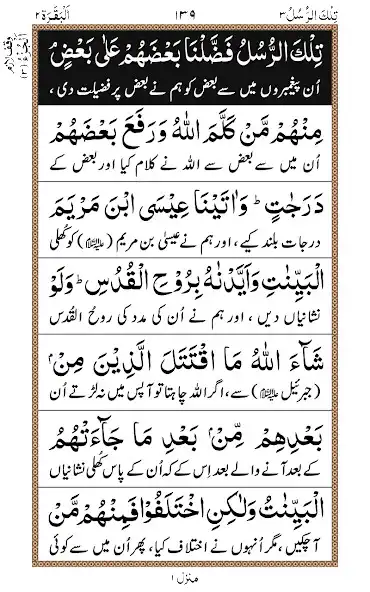 تِلْكَ الرُّسُلُ ٣
١٣٩
اَلْبَقَرَة ٢
تِلْكَ الرُّسُلُ فَضَّلْنَا بَعْضَهُمْ عَلٰى بَعْضٍ ۘ
اُن پیغمبروں میں سے بعض کو ہم نے بعض پر فضیلت دی ،
مِنْهُمْ مَّنْ كَلَّمَ اللّٰهُ وَرَفَعَ بَعْضَهُمْ
اُن میں سے بعض سے اللہ نے کلام کیا اور بعض کے
دَرَجٰتٍ ؕ وَاٰتَيْنَا عِيْسَى ابْنَ مَرْيَمَ
درجات بلند کیے، اور ہم نے عیسیٰ بن مریم (علیہ السلام) کو کھُلی
الْبَيِّنٰتِ وَاَيَّدْنٰهُ بِرُوْحِ الْقُدُسِ ؕ وَلَوْ
نشانیاں دیں ، اور ہم نے اُن کی مدد کی روحُ القُدس
شَآءَ اللّٰهُ مَا اقْتَتَلَ الَّذِيْنَ مِنْۢ
(جبرئیل علیہ السلام) سے، اگر اللہ چاہتا تو آپس میں نہ لڑتے اُن
بَعْدِهِمْ مِّنْۢ بَعْدِ مَا جَآءَتْهُمُ
کے بعد آنے والے بعد اِس کے کہ اُن کے پاس کھُلی نشانیاں
الْبَيِّنٰتُ وَلٰكِنِ اخْتَلَفُوْا فَمِنْهُمْ مَّنْ
آچکیں ، مگر اُنہوں نے اختلاف کیا، پھر اُن میں سے کوئی
منزل ١